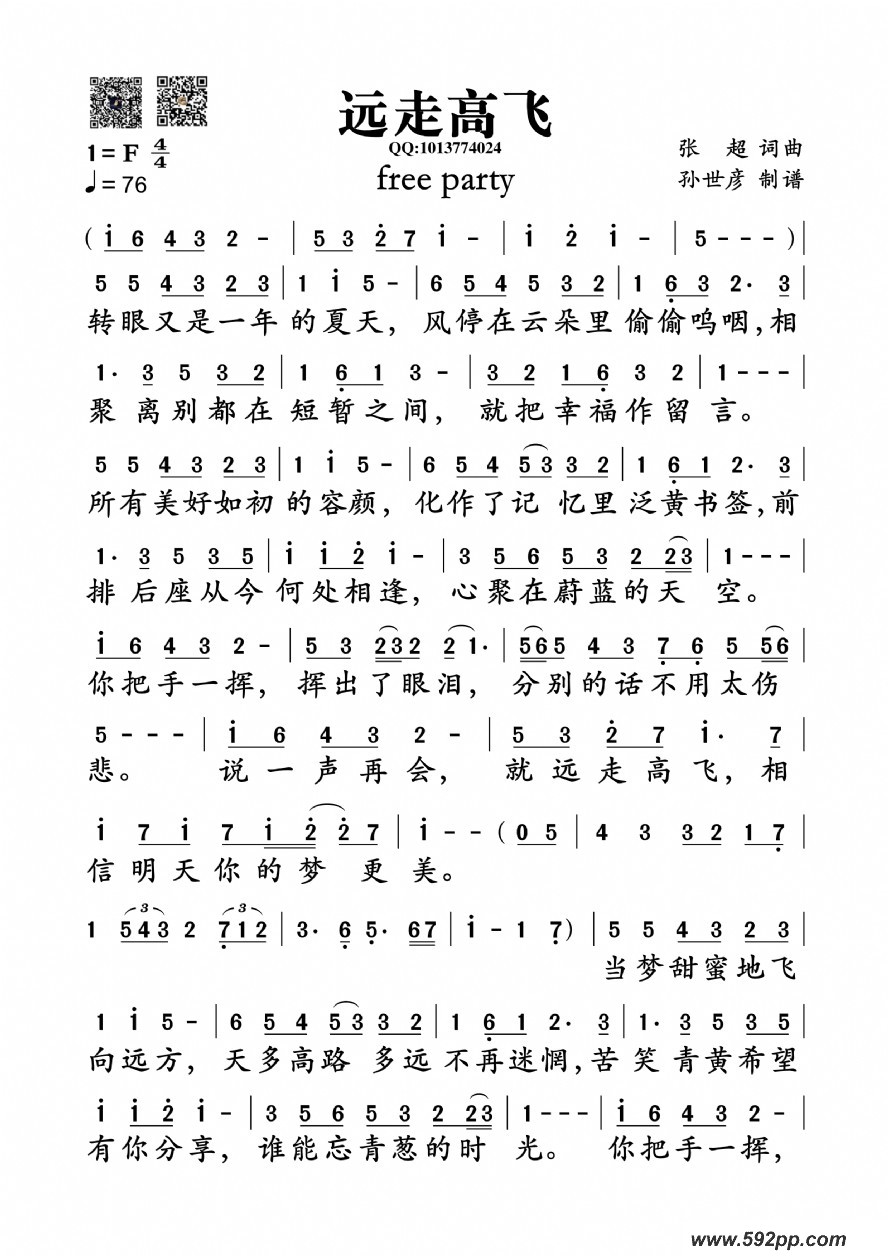 远走高飞
QQ:1013774024
free party
1=F 4/4
♩=76
张 超 词曲
孙世彦 制谱
( i 6 4 3 2 - | 5 3 2̇ 7 i - | i 2̇ i - | 5 - - - )|
5 5 4 3 2 3 | 1 i 5 - | 6 5 4 5 3 2 | 1 6̣ 3 2· 3 |
转眼又是一年 的夏天, 风停在云朵里 偷偷呜咽,相
1· 3 5 3 2 | 1 6̣ 1 3 - | 3 2 1 6̣ 3 2 | 1 - - - |
聚 离别都在 短暂之间, 就把幸福作留言。
5 5 4 3 2 3 | 1 i 5 - | 6 5 4 5 3 3 2 | 1 6̣ 1 2· 3 |
所有美好如初 的容颜, 化作了记 忆里 泛黄书签,前
1· 3 5 3 5 | i i 2̇ i - | 3 5 6 5 3 2 2 3 | 1 - - - |
排 后座从今 何处相逢, 心聚在蔚蓝的天 空。
i 6 4 3 2 - | 5 3 2 3 2 2 1· | 5 6 5 4 3 7̣ 6̣ 5 5 6 |
你把手一挥, 挥出了眼泪, 分别的话不用太伤
5 - - - | i 6 4 3 2 - | 5 3 2̇ 7 i· 7 |
悲。 说一声再会, 就远走高飞,相
i 7 i 7 i 2̇ 2̇ 7 | i - - ( 0 5 | 4 3 3 2 1 7̣ |
信明天你的梦 更美。
1 5 4 3 2 7̣ 1 2 | 3· 6̣ 5̣· 6 7 | i - 1 7̣ ) | 5 5 4 3 2 3 |
当梦甜蜜地飞
1 i 5 - | 6 5 4 5 3 3 2 | 1 6̣ 1 2· 3 | 1· 3 5 3 5 |
向远方, 天多高路 多远 不再迷惘,苦笑青黄希望
i i 2̇ i - | 3 5 6 5 3 2 2 3 | 1 - - - | i 6 4 3 2 - |
有你分享, 谁能忘青葱的时 光。 你把手一挥,
www.592pp.com